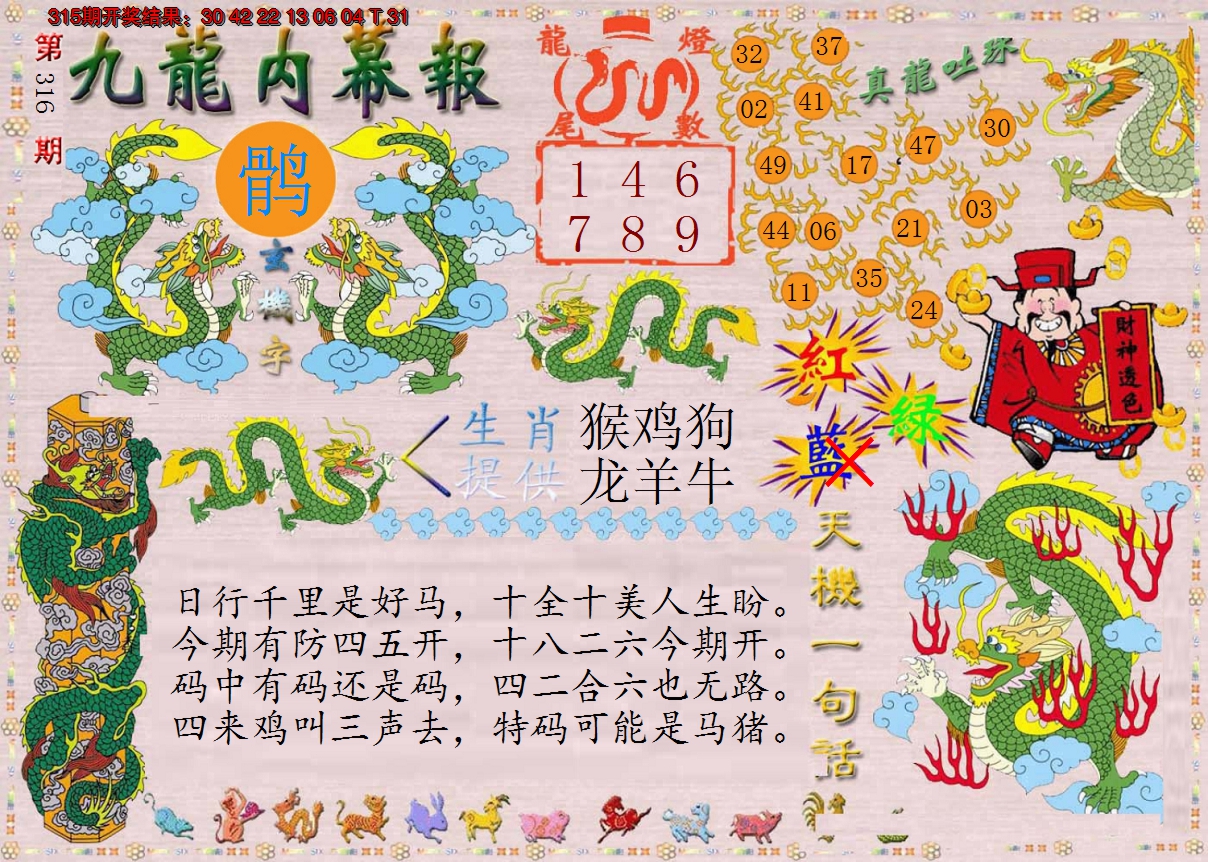 315期开奖结果：30 42 22 13 06 04 T 31
第316期
九龍内幕報
鹘
玄機字
龍燈
尾數
1 4 6
7 8 9
真龍吐珠
32
37
02
41
30
47
49
17
03
44
06
21
35
11
24
財神透色
紅
綠
藍
生肖
提供
猴鸡狗
龙羊牛
天機一句話
日行千里是好马，十全十美人生盼。
今期有防四五开，十八二六今期开。
码中有码还是码，四二合六也无路。
四来鸡叫三声去，特码可能是马猪。